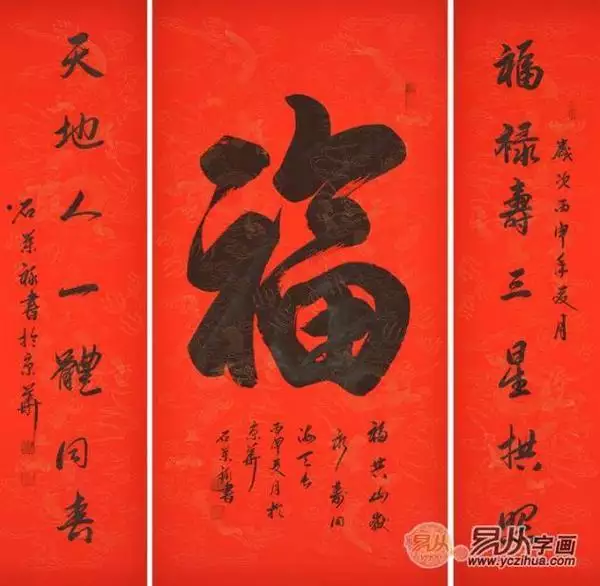 福禄壽三星拱照
歲次丙申年夏月
福
福共山嶽
永壽同
海天長
丙申夏月於
京華
石荣禄書
天地人一體同春
石荣禄書於京華
易从字画
www.yczihua.com